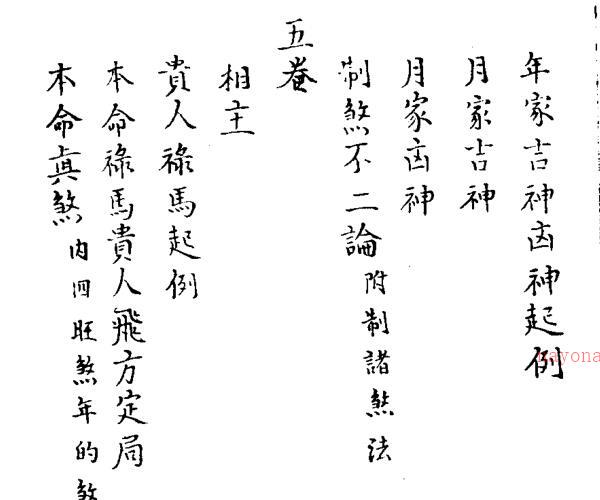 年家吉神凶神起例
月家吉神
月家凶神
制煞不二論 附制諸煞法
五卷
相主
貴人祿馬起例
本命祿馬貴人飛方定局
本命真煞 內四旺煞年的煞